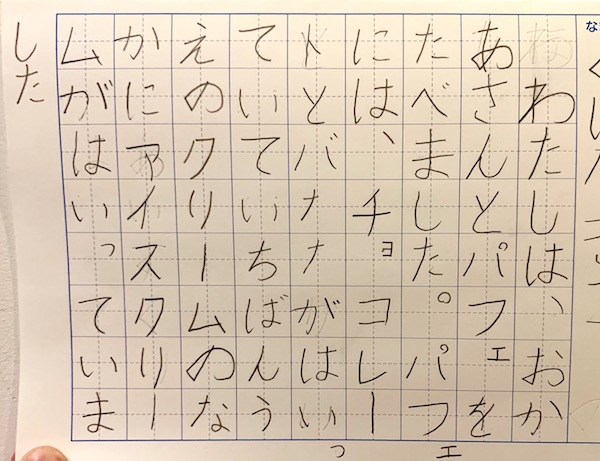 わたしは、おか
あさんとパフェを
たべました。パフェ
には、チョコレー
トとバナナがはいっ
ていていちばんう
えのクリームのな
かにアイスクリー
ムがはいっていま
した